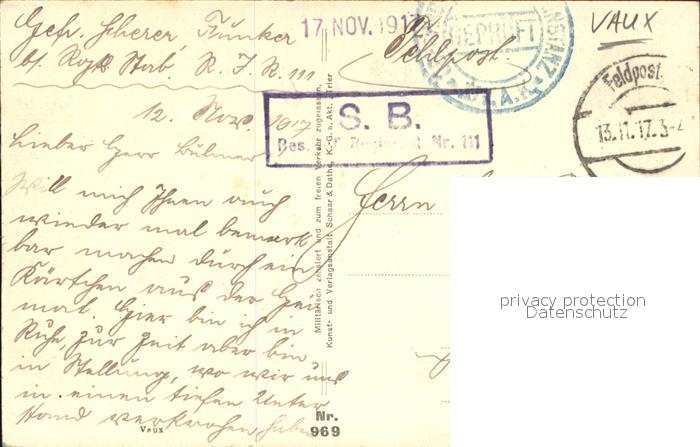 Gefr. Scherer, Funker
b/. Rgts. Stab. R. I. R. 111
17 NOV. 1917
Feldpost
GEPRÜFT
VAUX
Feldpost
13.11.17.3-4
12. Nov. 1917
S. B.
Res. Inf Regiment Nr. 111
Lieber Herr Bühner
Will mich Ihnen auch
wieder mal bemerk
bar machen durch ein
Kärtchen aus der Hei
mat. Hier bin ich in
Ruhe, zur Zeit aber bin
in Stellung, wo wir uns
in einen tiefen Unter
stand verkrochen haben
Herrn
Militärisch zensiert und zum freien Verkehr zugelassen.
Kunst- und Verlagsanstalt Schaar & Dathe, K.-G. a. Akt. Trier
privacy protection
Datenschutz
Vaux
Nr.
969